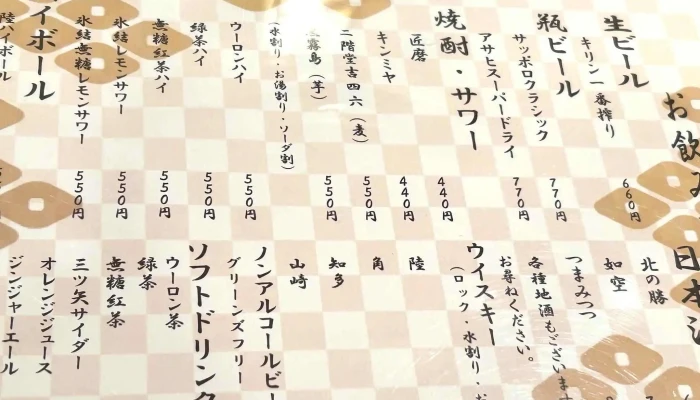 お飲み
生ビール
キリン一番搾り
660円
瓶ビール
サッポロクラシック
770円
アサヒスーパードライ
770円
焼酎・サワー
匠磨
440円
キンミヤ
440円
二階堂吉四六(麦)
550円
霧島(芋)
550円
(水割り・お湯割り・ソーダ割)
ウーロンハイ
550円
緑茶ハイ
550円
無糖紅茶ハイ
550円
氷結レモンサワー
550円
氷結無糖レモンサワー
550円
イボール
陸ハイボール
日本
北の勝
如空
つまみつつ
各種地酒もございます
お尋ねください。
ウイスキー
(ロック・水割り・お
陸
角
知多
山崎
ノンアルコールビー
グリーンズフリー
ソフトドリンク
ウーロン茶
緑茶
無糖紅茶
三ツ矢サイダー
オレンジジュース
ジンジャーエール